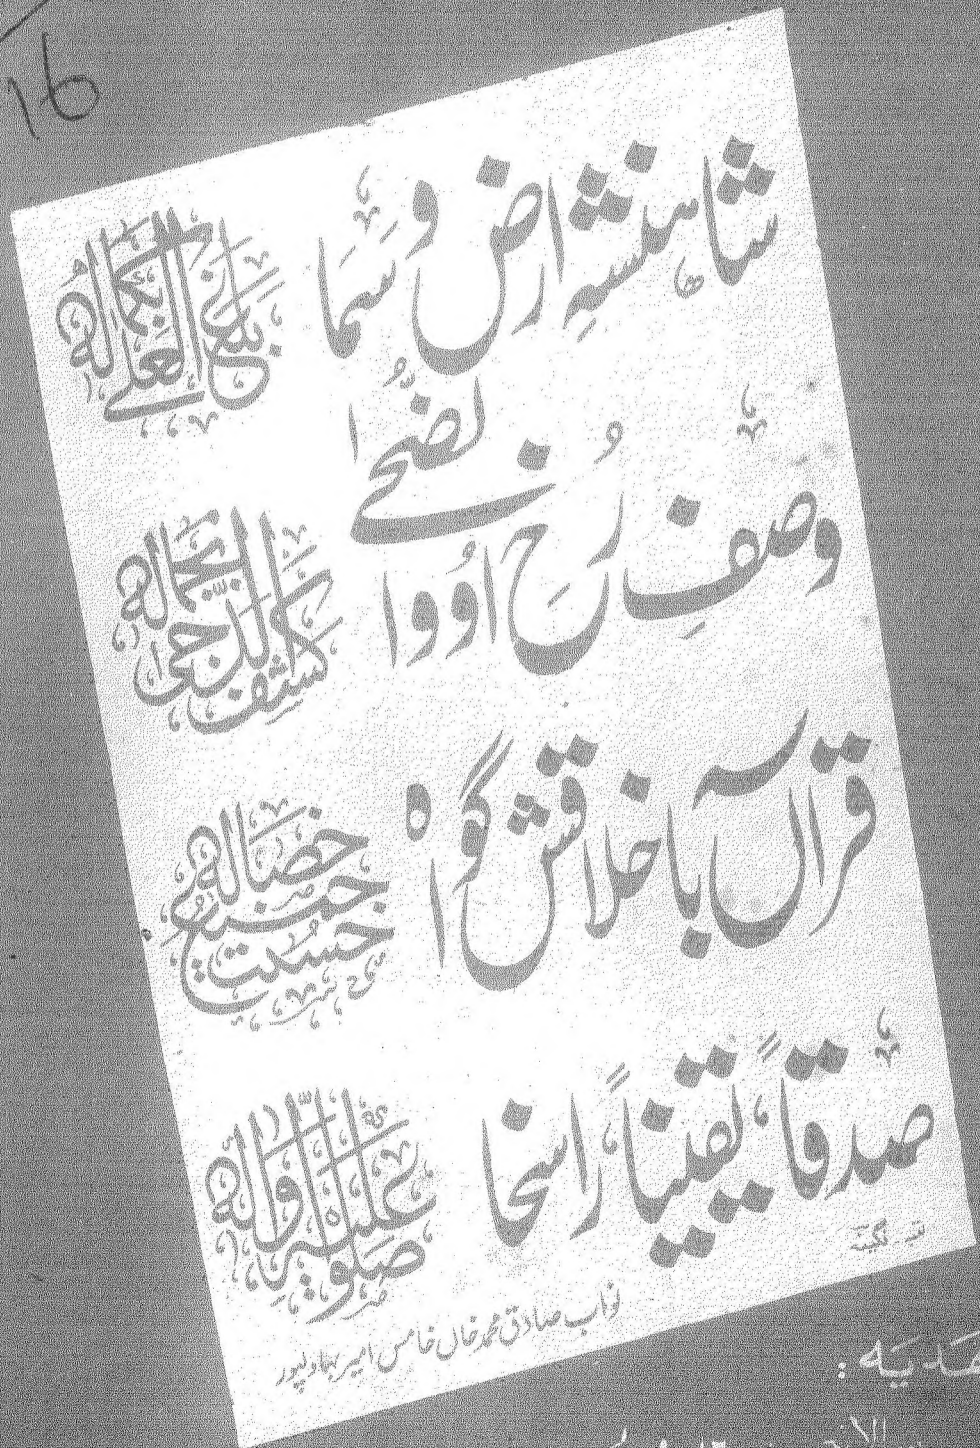 16
شاہنشہِ ارض و سما بلغ العلى بكماله
وصفِ رخِ اُو والضُّحےٰ كشف الدّجى بجماله
قرآں باخلاقش گواہ حسنت جميع خصاله
صدقاً، یقیناً، راسخا صلوا عليه وآله
نواب صادق محمد خاں خامس امیر بہاولپور
ھَدیَہ: